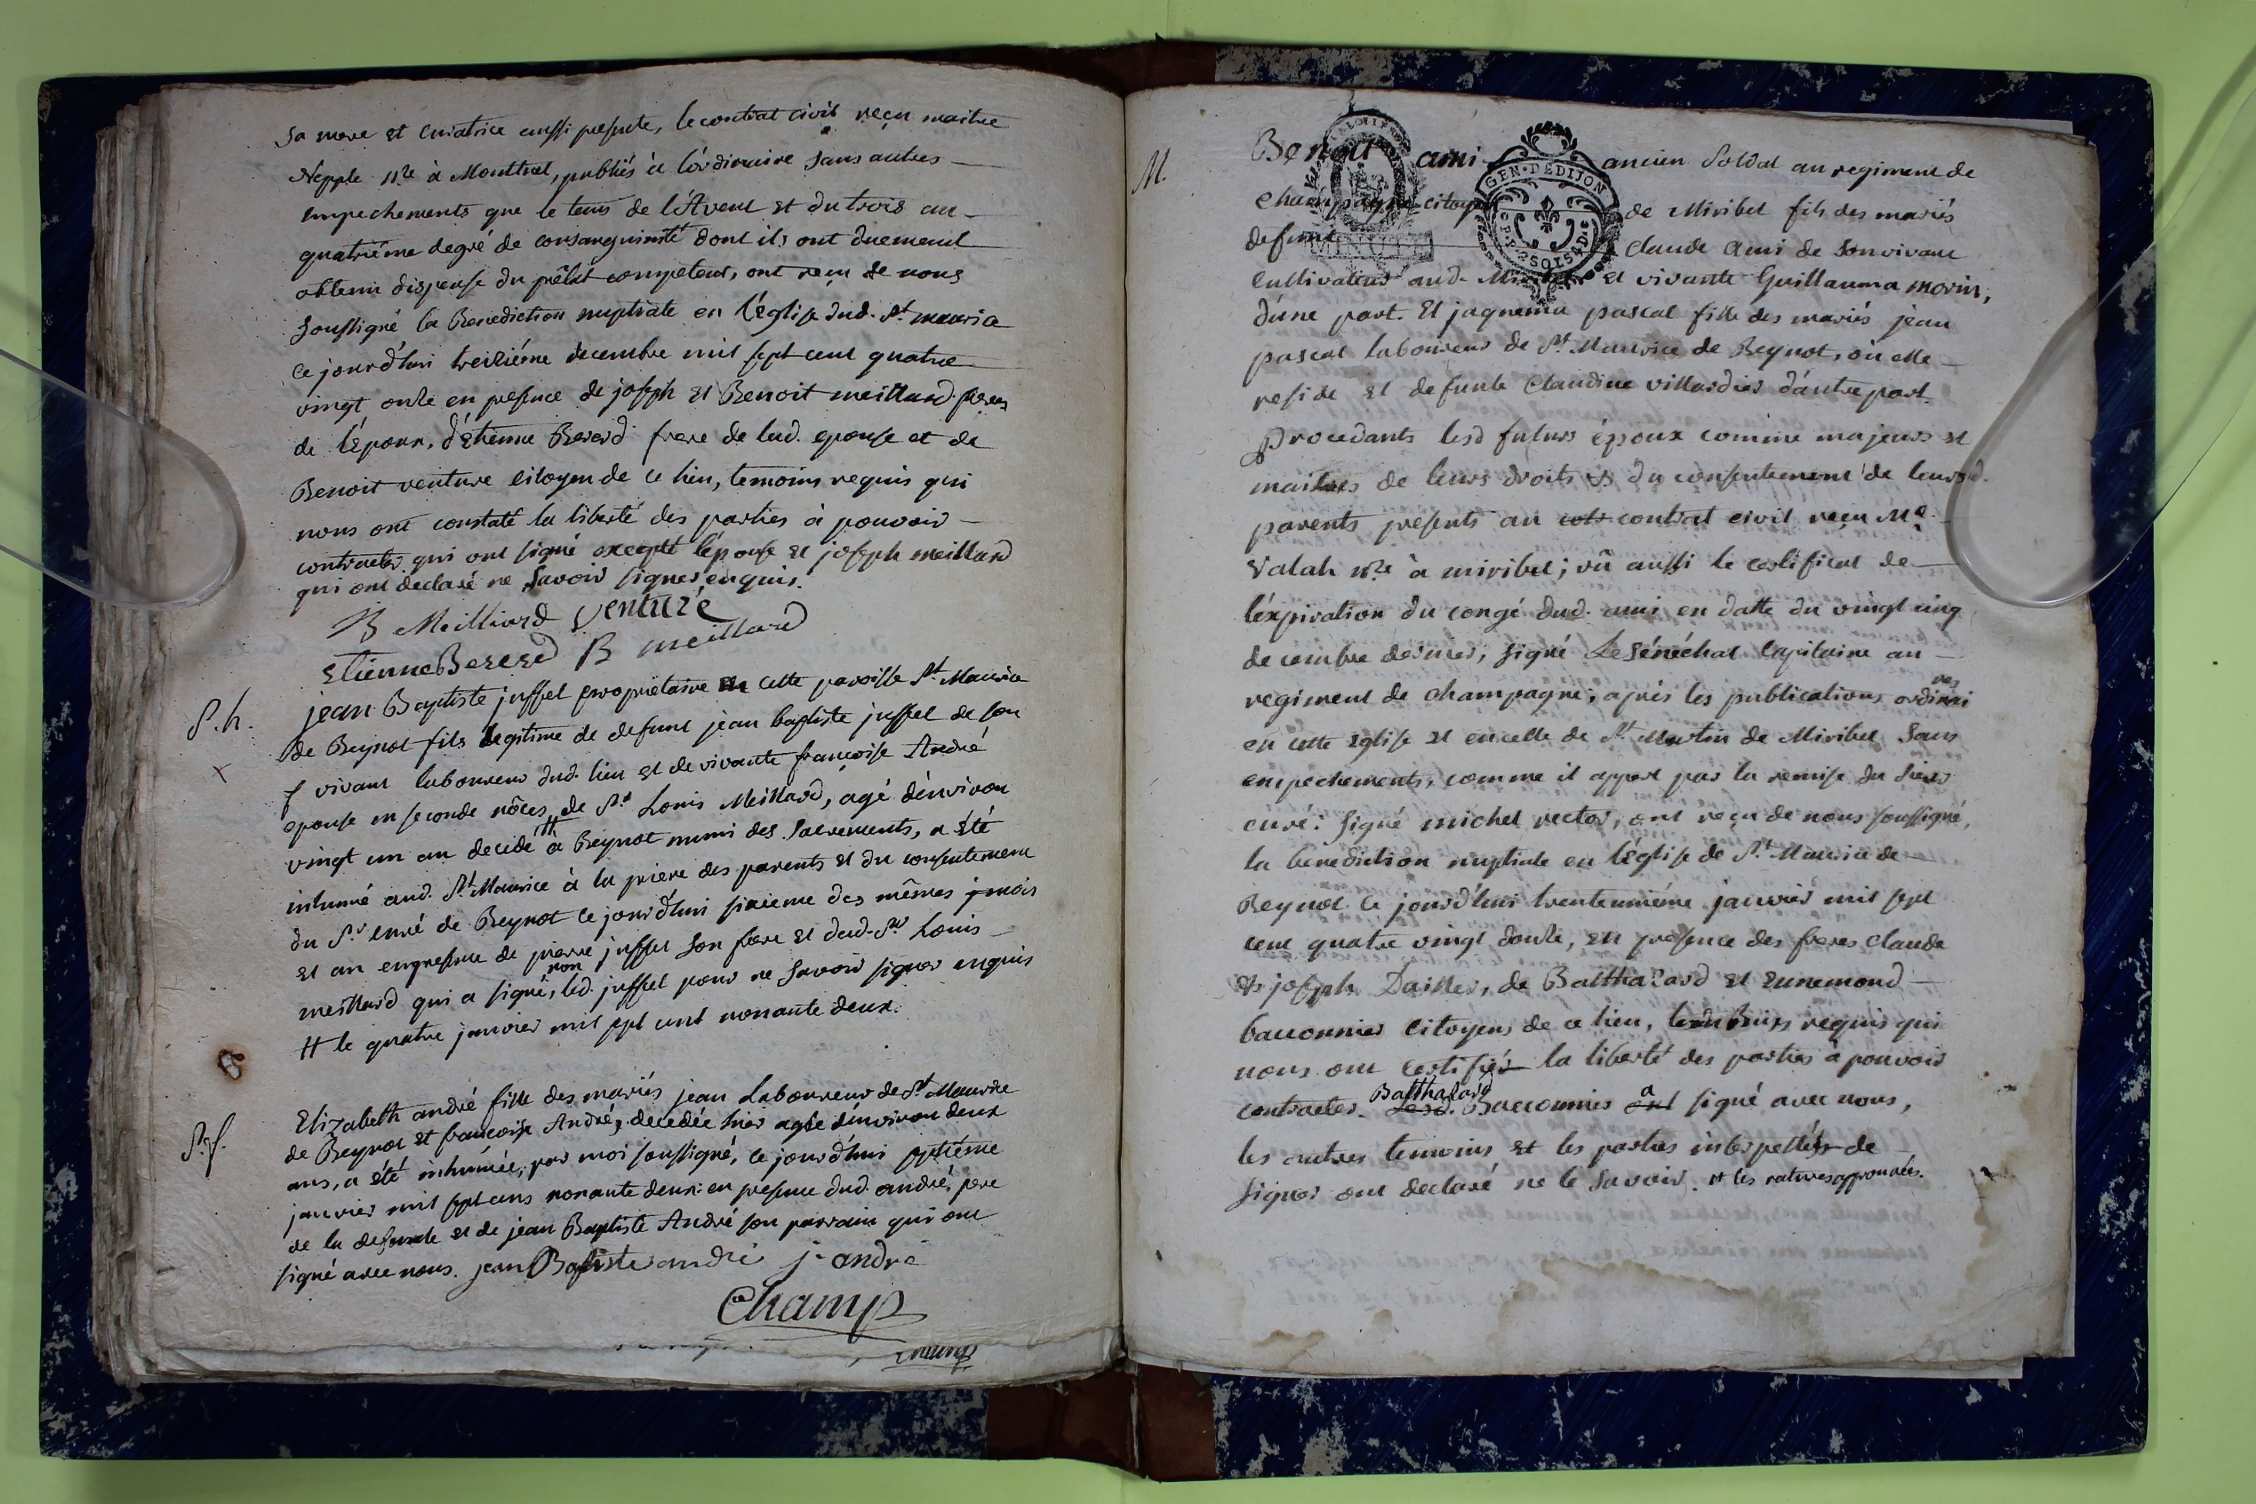 sa mere et curatrice aussi presente, le contrat civil reçu maitre
Nepple nre à Montluel, publiés à l'ordinaire sans autres
empechements que le tems de l'Avent et du trois au
quatriéme degré de consanguinité dont ils ont duement
obtenu dispense du prêlat competent, ont reçu de nous
soussigné la Benediction nuptiale en l'église dud. St maurice
ce jourd'hui treiziéme decembre mil sept cent quatre
vingt onze en presence de joseph et Benoit meillard freres
de l'Epoux, d'Etienne Bererd frere de lad. epouse et de
Benoit venture citoyen de ce lieu, temoins requis qui
nous ont constaté la liberté des parties à pouvoir
contracter qui ont signé excepté l'épouse et joseph meillard
qui ont declaré ne savoir signer enquis.
B Meilliard venture
Etienne Bererd B meillard
S. h.
jean Baptiste juffet proprietaire en cette paroisse St Maurice
de Beynot fils legitime de defunt jean baptiste juffet de son
vivant laboureur dud. lieu et de vivante francoise André
epouse en seconde nôces de Sr Louis Meillard, âgé d'environ
vingt un an decédé # a Beynot muni des sacrements, a été
inhumé aud. St Maurice à la priere des parents et du consentement
du Sr curé de Beynot ce jourd'hui sixieme des mêmes mois
et an en presence de pierre juffet son frere et dud. Sr Louis
meillard qui a signé, non led. juffet pour ne savoir signer enquis
# le quatre janvier mil sept cent nonante deux.
S. f.
Elizabeth andré fille des mariés jean Laboureur de St Maurice
de Beynot et francoise André, decedée hier agée d'environ deux
ans, a été inhumée, par moi soussigné, ce jourd'hui septiéme
janvier mil sept cens nonante deux: en presence dud. andré, pere
de la defunte et de jean Baptiste André son parrain qui ont
signé avec nous. jean Baptiste andré j. andré
Champ
M.
Benoit ami ancien soldat au regiment de
champagne citoyen de Miribel fils des mariés
defunt claude ami de son vivant
cultivateur aud. Miribel et vivante Guillauma morin,
d'une part. Et jaquema pascal fille des mariés jean
pascal laboureur de St Maurice de Beynot, où elle
reside et defunte Claudine villardier d'autre part.
Procedants lesd futurs époux comme majeurs et
maitres de leurs droits & du consentement de leursd.
parents presents au contrat civil reçu Me
Valah nre à miribel; vû aussi le certificat de
l'éxpiration du congé dud. ami en datte du vingt cinq
decembre dernier, signé Le Sénéchal Capitaine au
regiment de champagne; aprés les publications ordinaires
en cette eglise et en celle de St Martin de Miribel sans
empechements, comme il appert par la remise du sieur
curé: signé michel rector, ont reçu de nous soussigné,
la benediction nuptiale en l'Eglise de St Maurice de
Beynot ce jourd'hui trenteuniéme janvier mil sept
cent quatre vingt douze, en presence des freres claude
& joseph Dailler, de Balthazard et Eunemond
bacconnier Citoyens de ce lieu, temoins requis qui
nous ont certifié la liberté des parties à pouvoir
contracter. Lesd. Balthazard Bacconnier ont a signé avec nous,
les autres temoins et les parties interpellés de
signer ont declaré ne le savoir. et les ratures approuvées.
GEN. DE DIJON